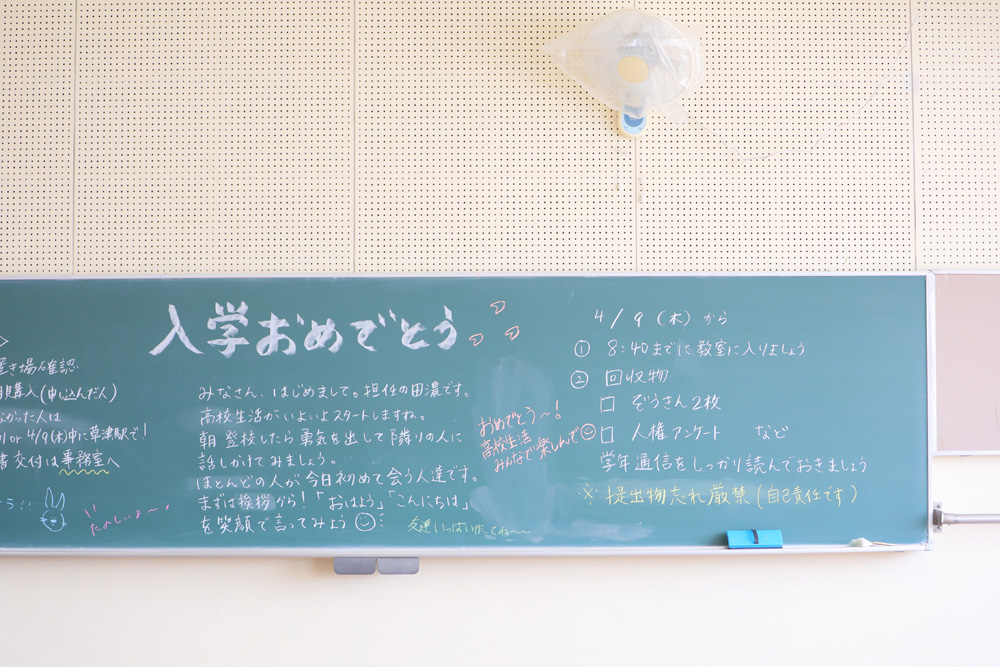 置き場確認
購入(申し込んだ人)
なかった人は
or 4/9(木)中に草津駅で!
書交付は事務室へ
たのしいよ～!
入学おめでとう
みなさん、はじめまして。担任の田濃です。
高校生活がいよいよスタートしますね。
朝 登校したら勇気を出して隣りの人に
話しかけてみましょう。
ほとんどの人が今日初めて会う人達です。
まずは挨拶から!「おはよう」「こんにちは」
を笑顔で言ってみよう
友達いっぱい
おめでとう～!
高校生活
みんなで楽しんで
4/9(木)から
① 8:40までに教室に入りましょう
② 回収物
□ ぞうさん2枚
□ 人権アンケート など
学年通信をしっかり読んでおきましょう
※提出物忘れ厳禁(自己責任です)